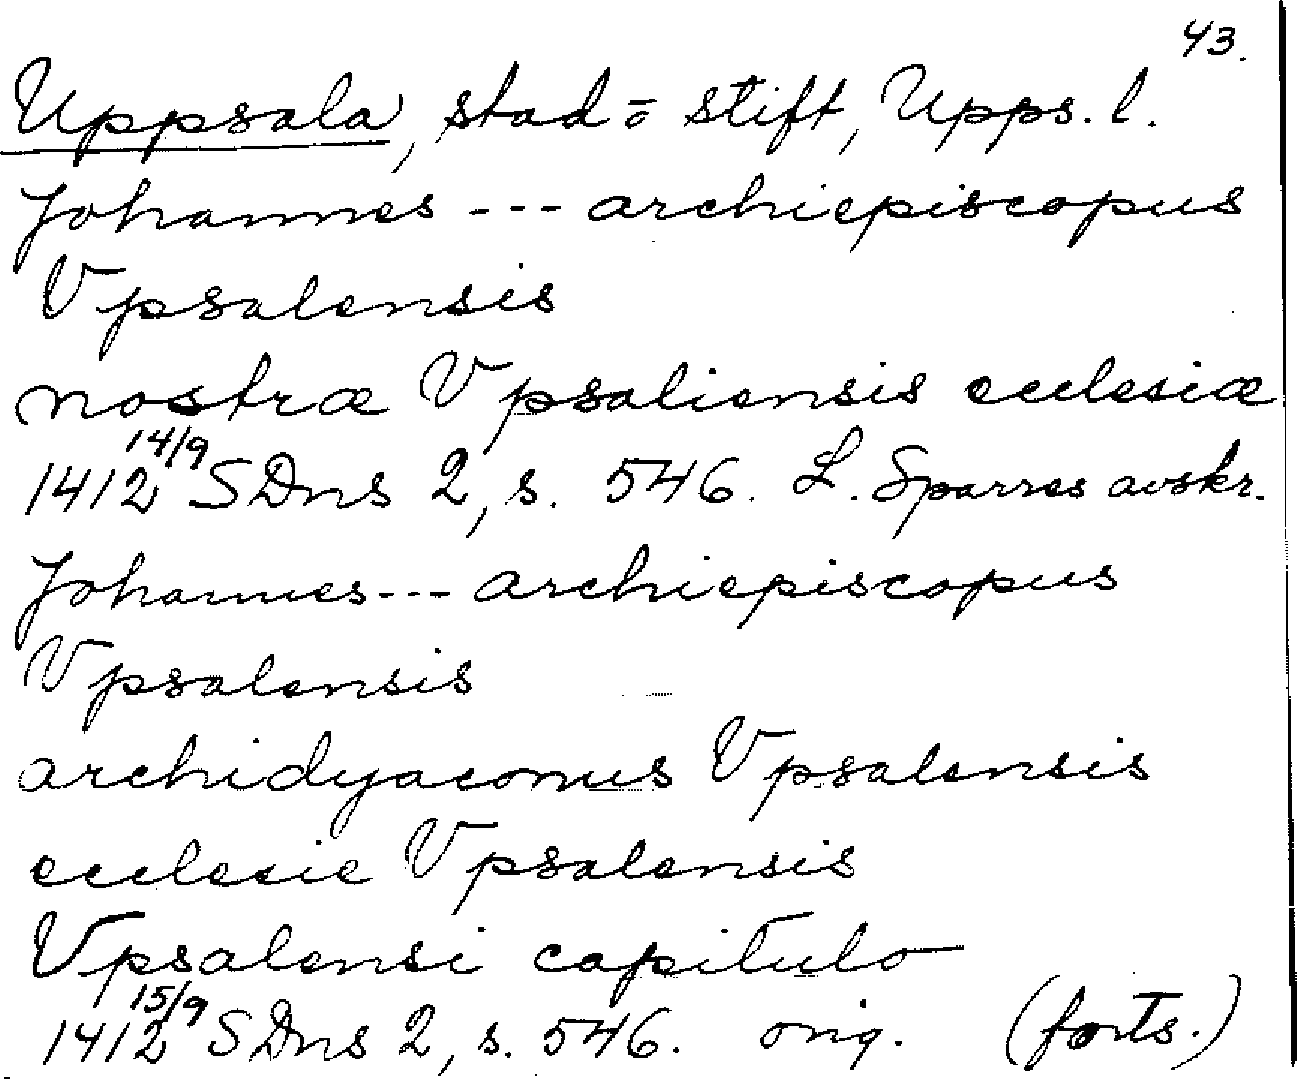 43.
Uppsala, stad o stift, Upps. l.
Johannes --- archiepiscopus
Vpsalensis
nostræ Vpsaliensis ecclesiæ
1412 14/9 SDns 2, s. 546. L. Sparres avskr.
Johannes --- archiepiscopus
Vpsalensis
archidyaconus Vpsalensis
ecclesie Vpsalensis
Vpsalensi capitulo
1412 15/9 SDns 2, s. 546. orig. (forts.)